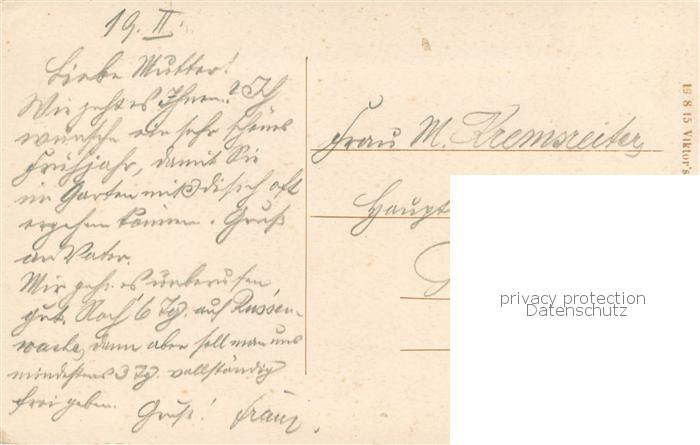 19. II.
Liebe Mutter!
Wie geht es Ihnen? Ich
wünsche ein sehr schönes
Frühjahr, damit Sie
im Garten sich oft
ergehen können. Gruß
an Vater.
Mir geht es unberufen
gut. Noch 6 Tg. auf Russen-
wache, dann aber soll man uns
mindestens 3 Tg. vollständig
frei geben.
Gruß! Franz.
Frau M. Kremsreiter,
Haupt
privacy protection
Datenschutz
19 8 15 Viktor's